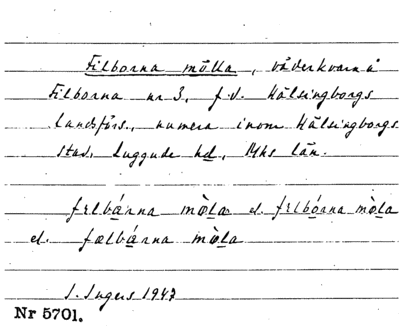 Filborna mölla, väderkvarn å
Filborna nr 3, f.d. Hälsingborgs
landsförs., numera inom Hälsingborgs
stad, Luggude hd, Mhs län.
fɛlbárna mø̀la el. fɛlbórna mø̀la
el. fælbárna mø̀la
I. Ingers 1947
Nr 5701.